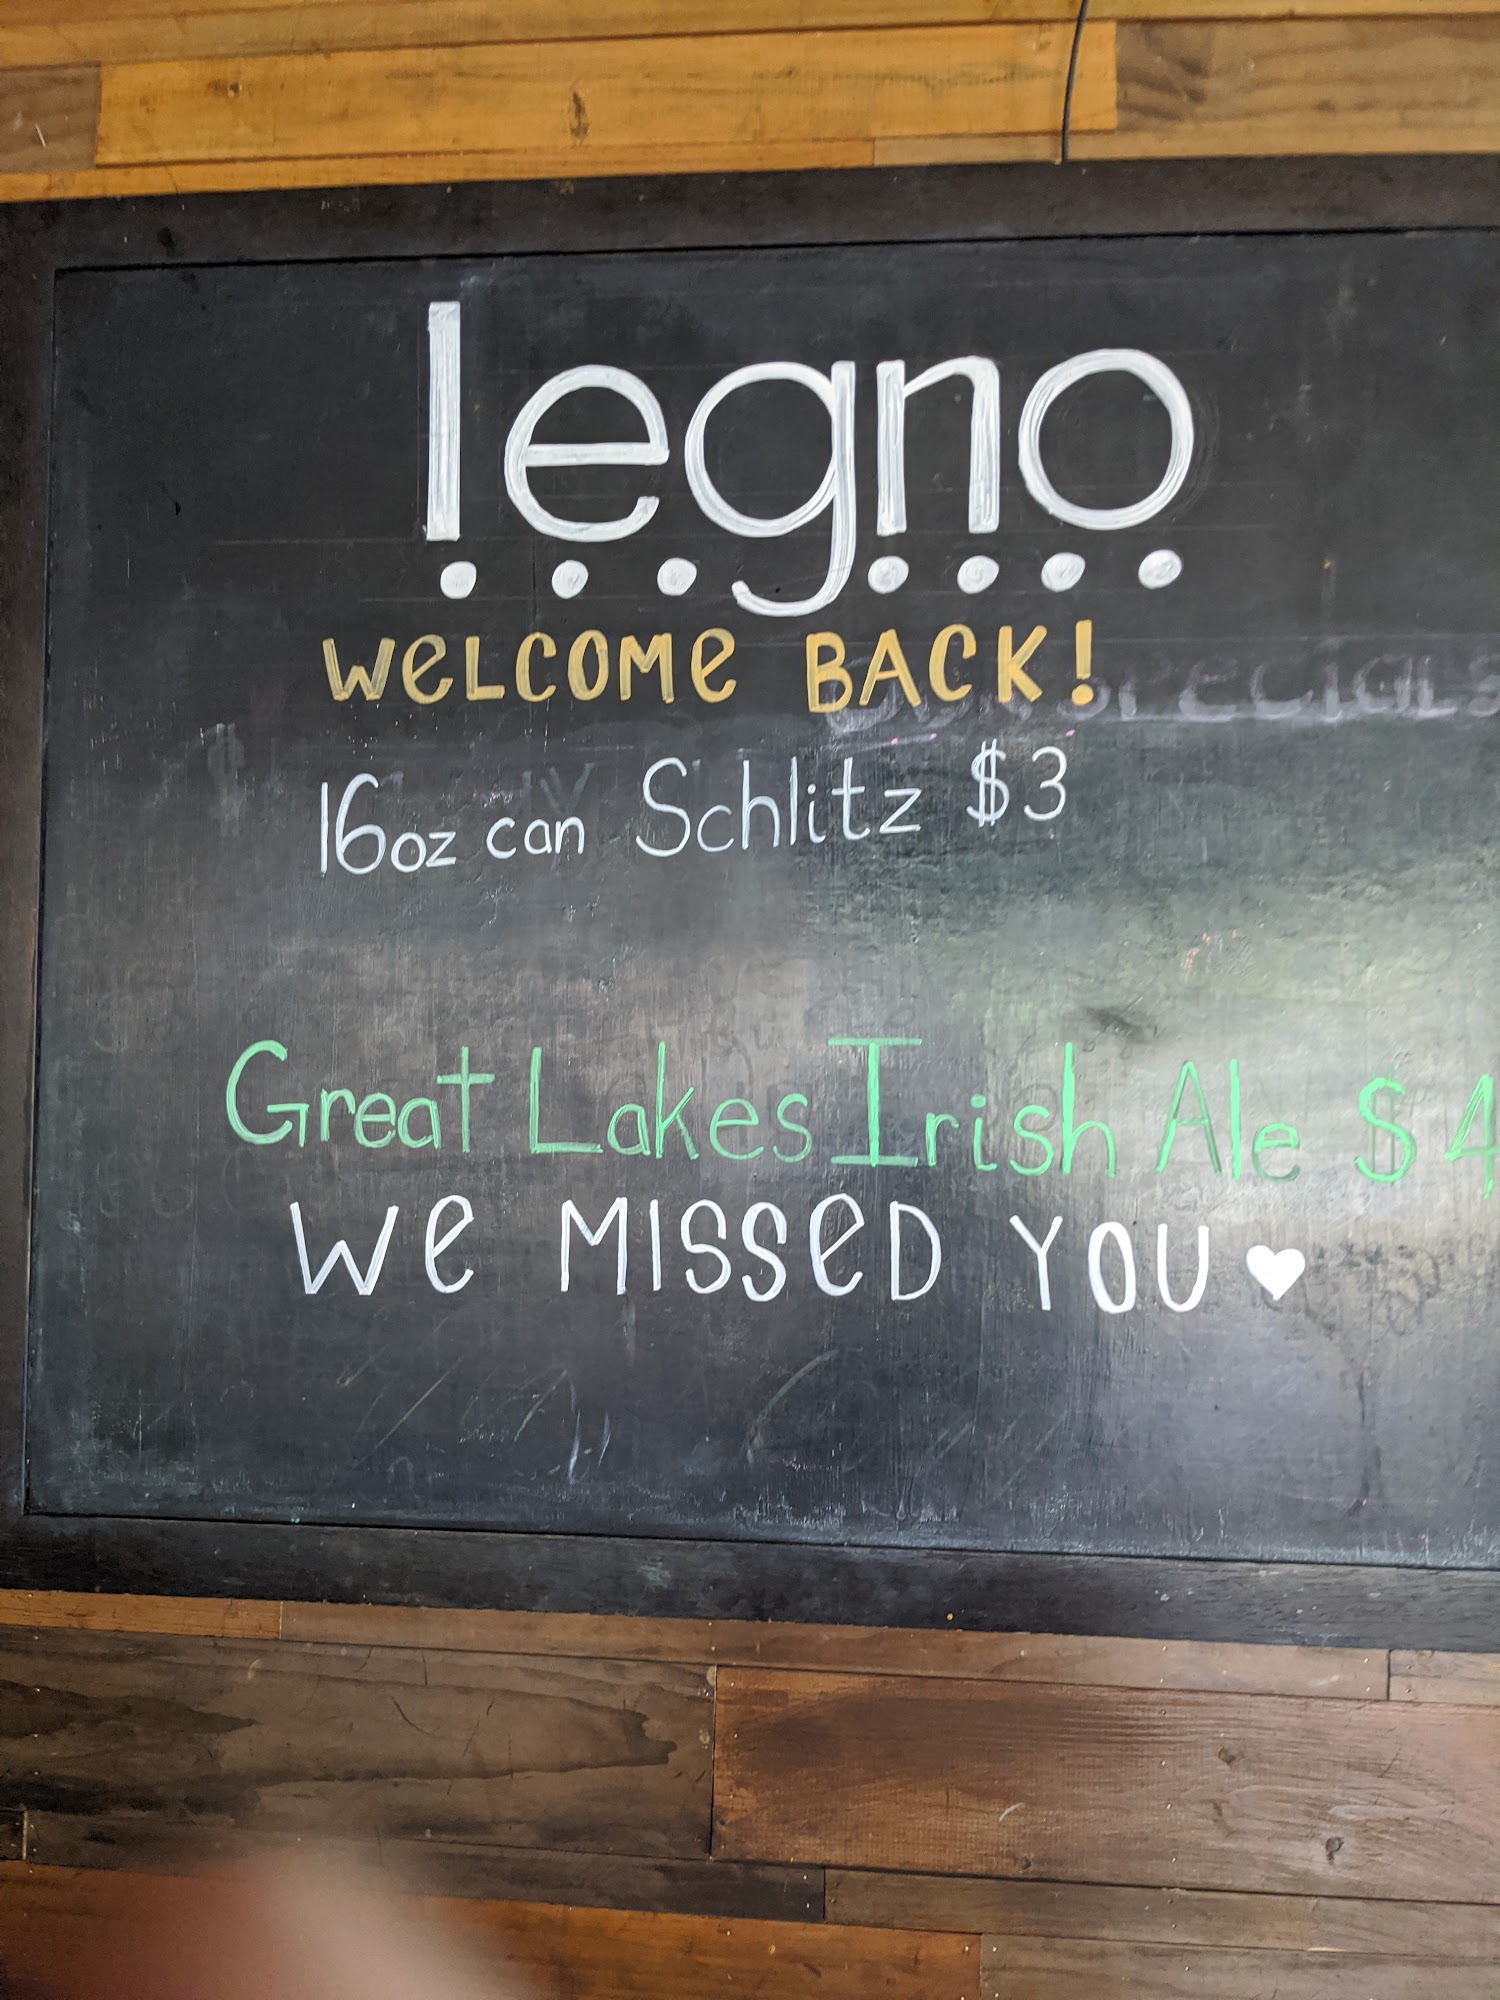 legno
WELCOME BACK!
SPECIALS
16oz can Schlitz $3
Great Lakes Irish Ale $4
WE MISSED YOU♥